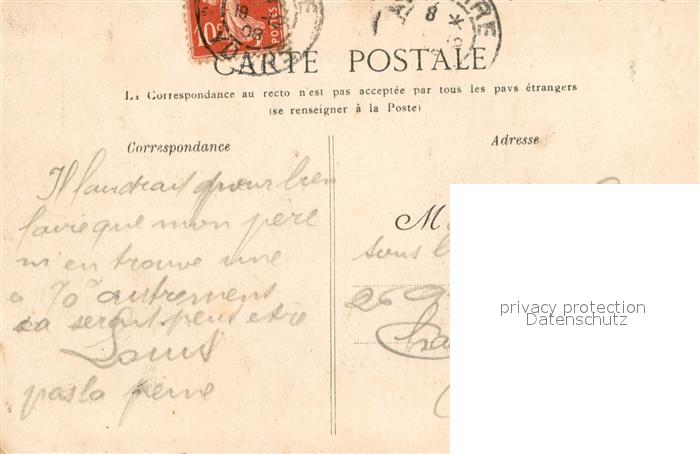 10c
POSTES
19
08
8
CARTE POSTALE
La Correspondance au recto n'est pas acceptée par tous les pays étrangers
(se renseigner à la Poste)
Correspondance
Il faudrait pour bien
faire que mon père
m'en trouve une
a 70 autrement
sa serait peut etre
Louis
pas la peine
Adresse
M
sous
26
privacy protection
Datenschutz